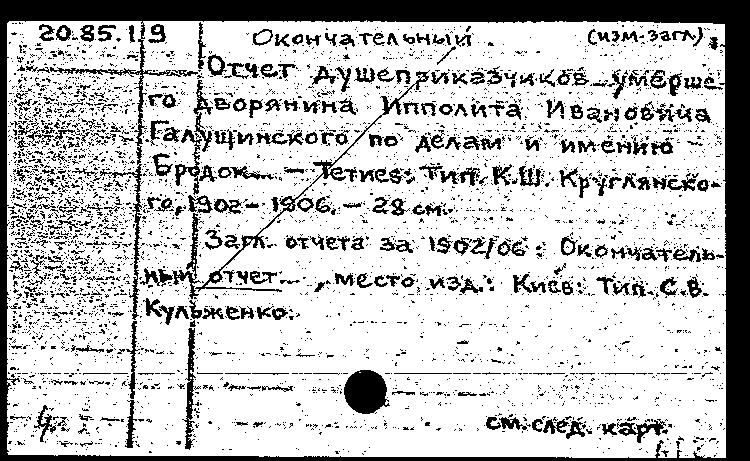 20.85.1.9 Окончательный . (изм. загл.)
Отчет душеприказчиков умерше-
го дворянина Ипполита Ивановича
Галущинского по делам и имению
Бродок... — Тетиев: Тип. К.Ш. Круглянско-
го, 1902 - 1906. — 28 см.
Загл. отчета за 1902/06 : Окончатель-
ный отчет... , место изд.: Киев: Тип. С.В.
Кульженко.
см. след. карт.